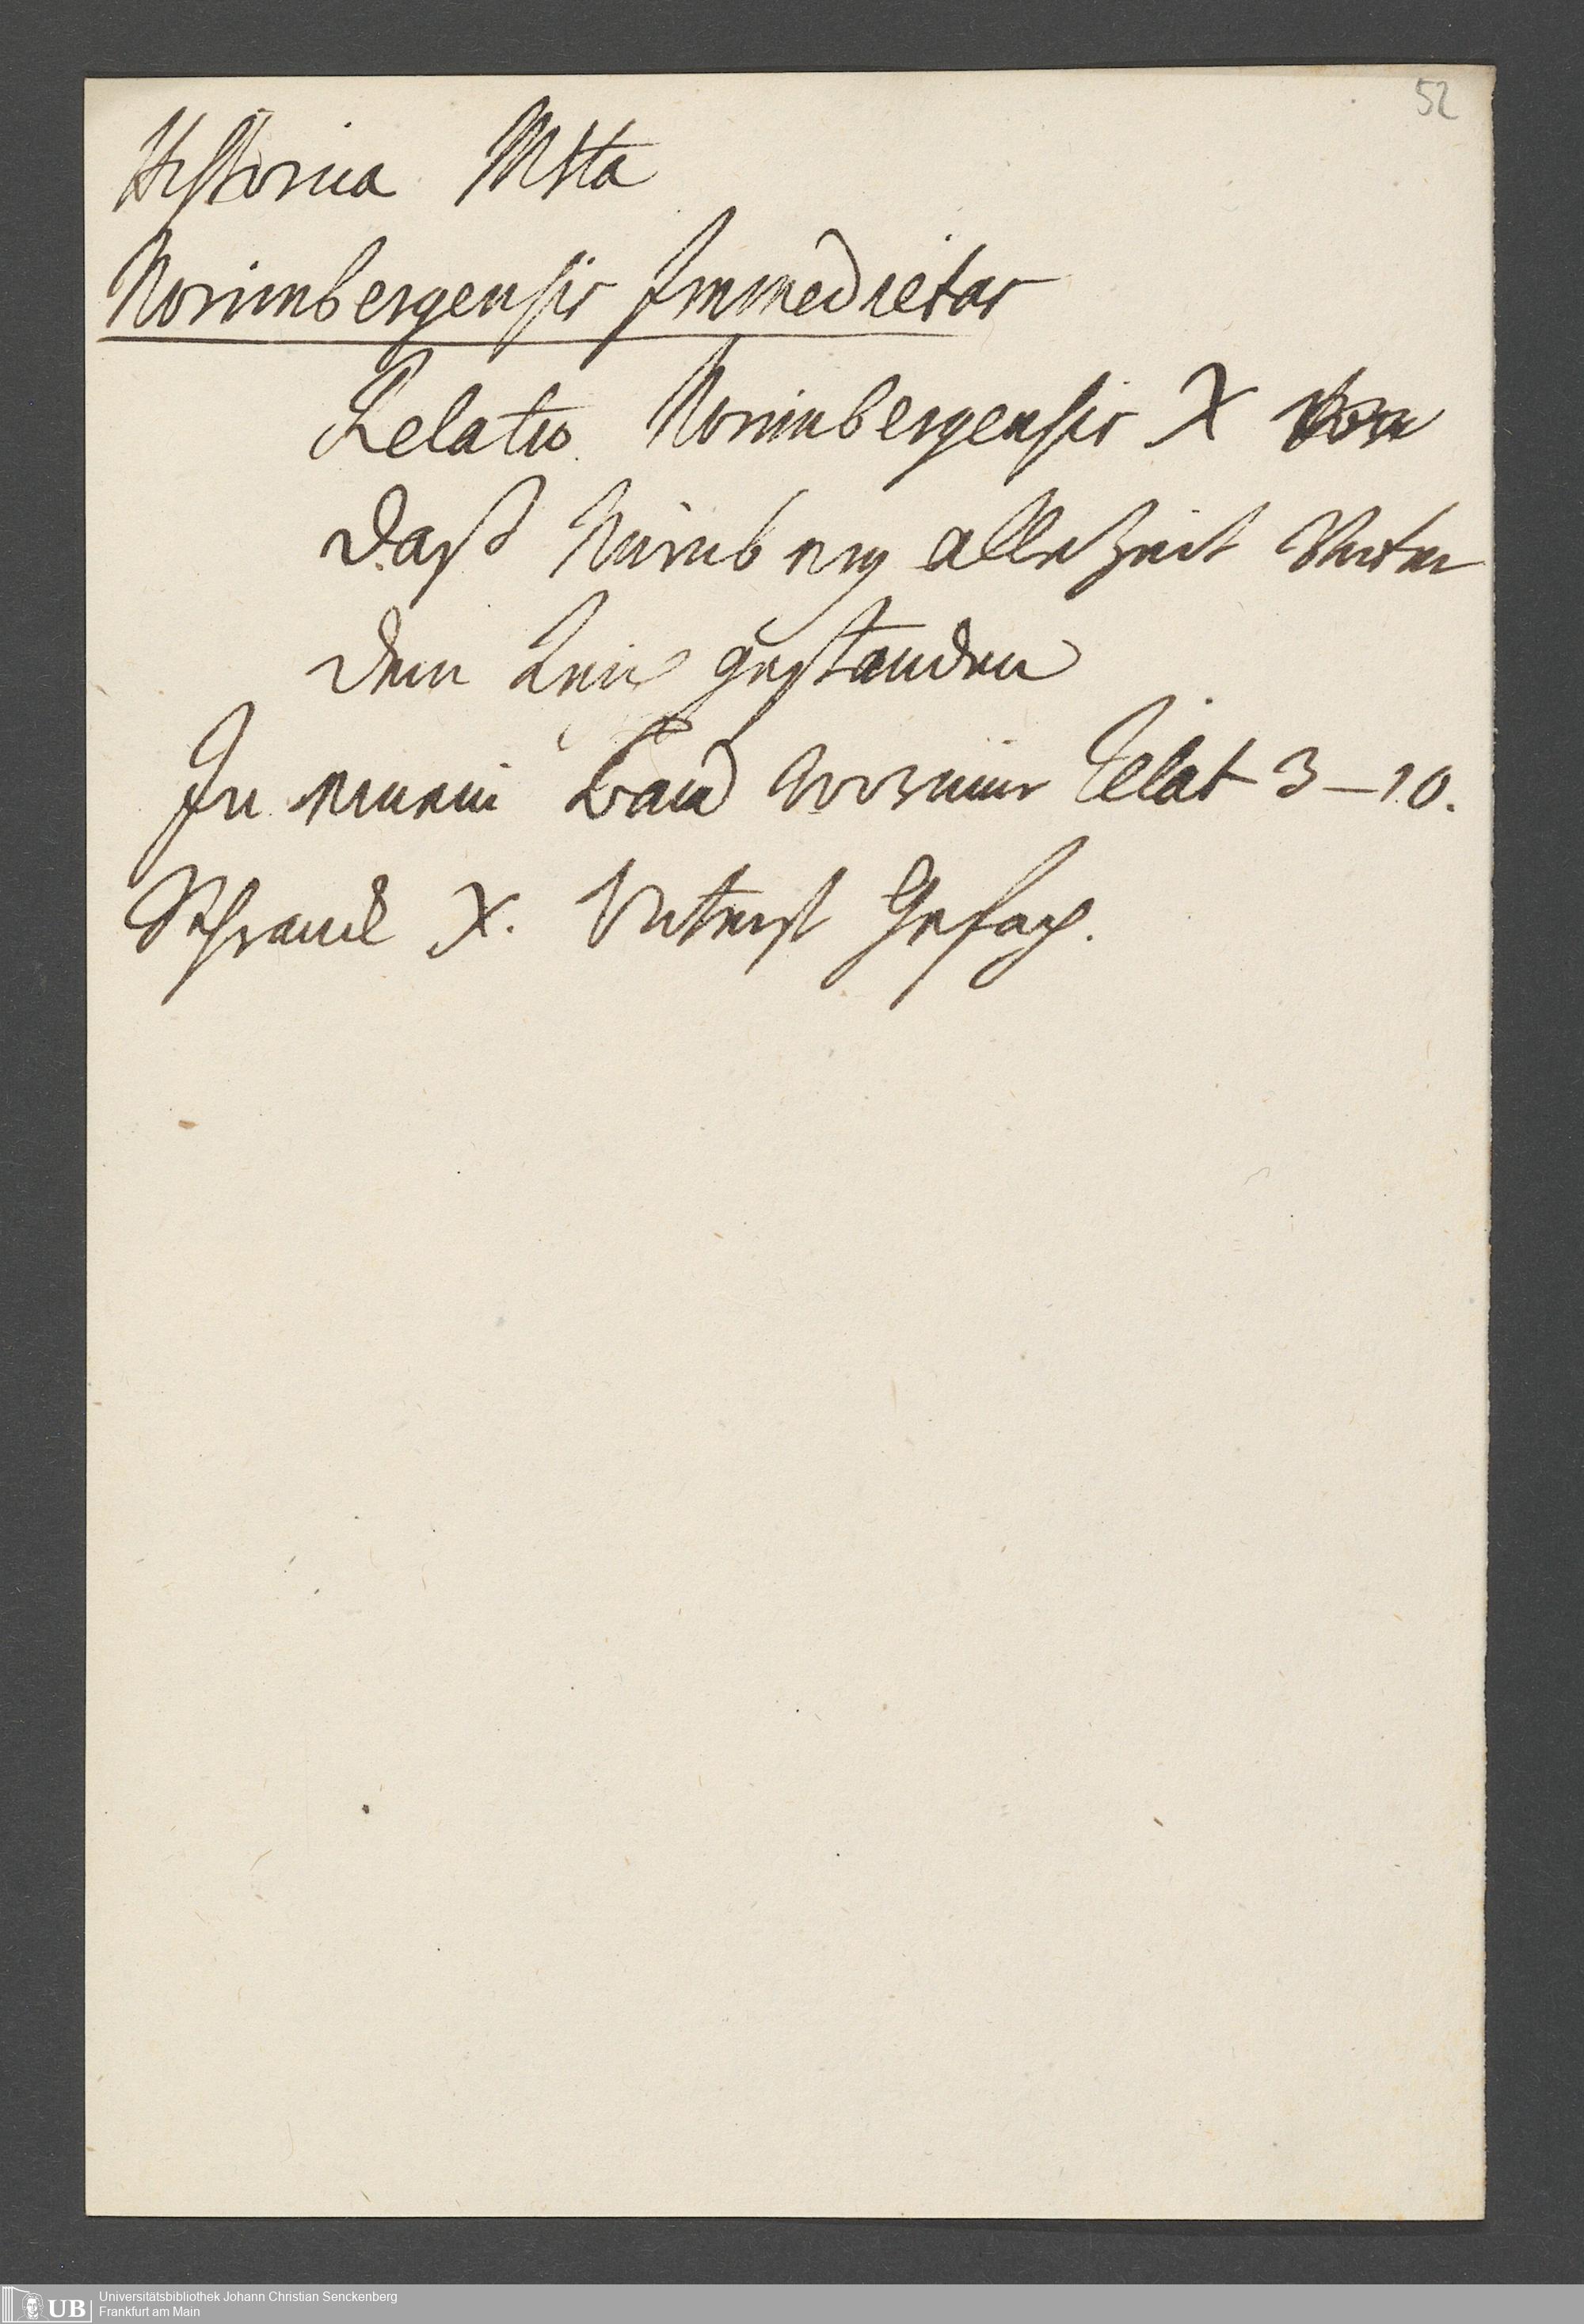 52
Historia Msta
Norimbergensis Immedietas
Relatio Norimbergensis X von
daß Nürnberg allezeit Unter
dem Reich gestanden
In einem Band worinnen Relat 3-10.
Schranck X. Unterst Gefach.
UB Universitätsbibliothek Johann Christian Senckenberg
Frankfurt am Main